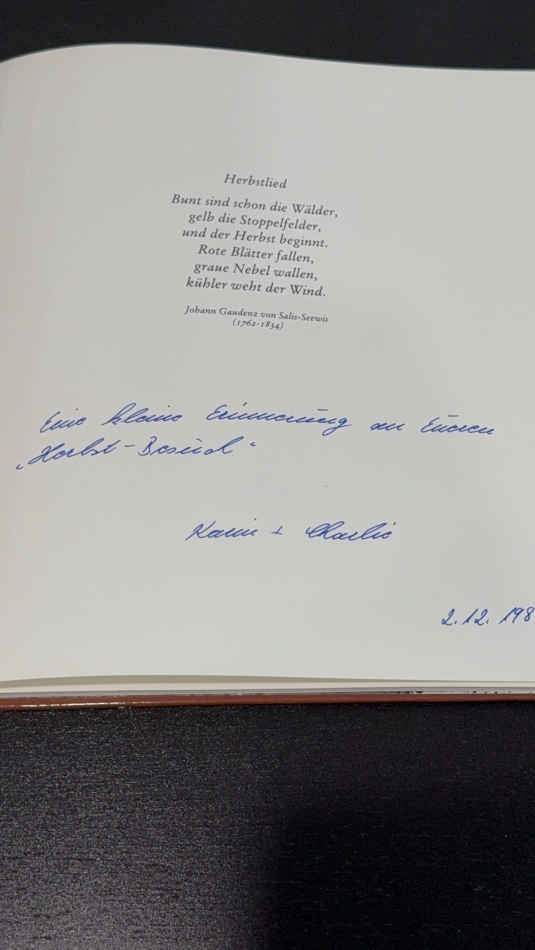 Herbstlied
Bunt sind schon die Wälder,
gelb die Stoppelfelder,
und der Herbst beginnt.
Rote Blätter fallen,
graue Nebel wallen,
kühler weht der Wind.
Johann Gaudenz von Salis-Seewis
(1762-1834)
Eine kleine Erinnerung an Eueren
„Herbst-Besuch"
Karin + Charlie
2.12.198